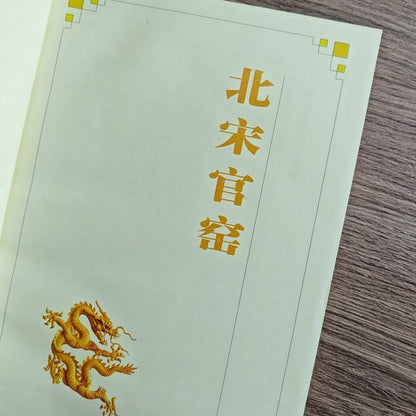 北宋官窑